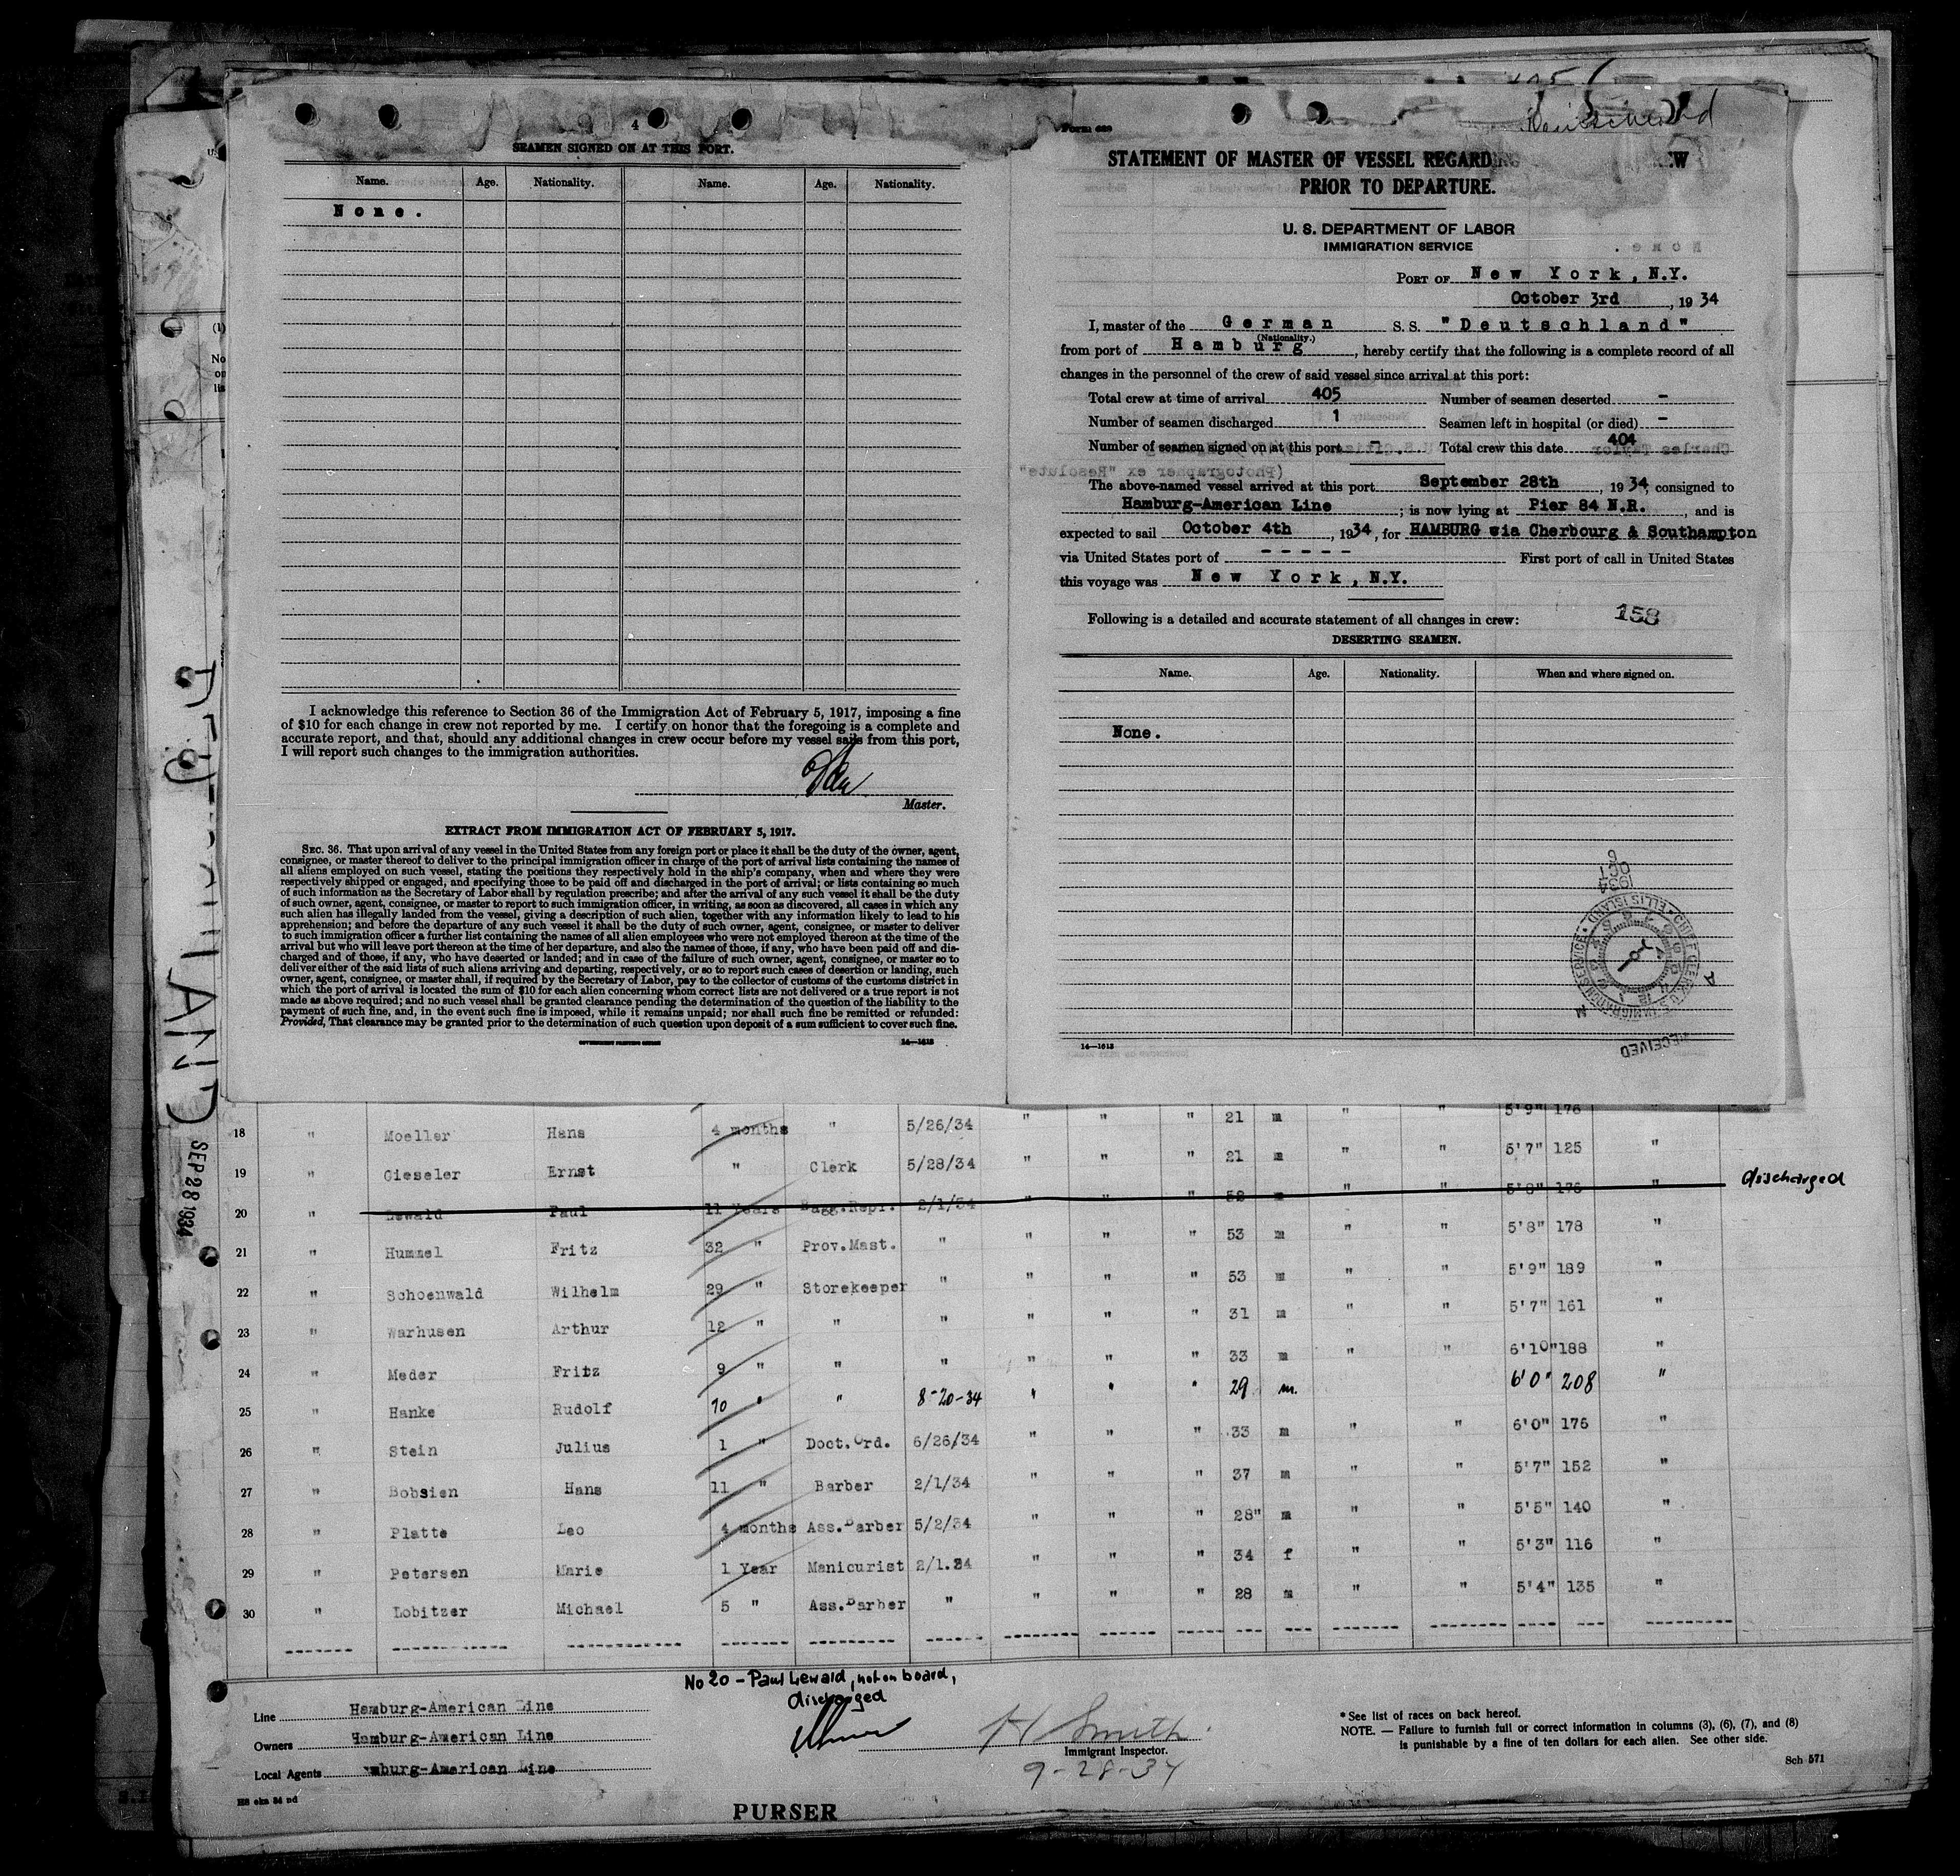 4
SEAMEN SIGNED ON AT THIS PORT.
Name. Age. Nationality. Name. Age. Nationality.
None.
I acknowledge this reference to Section 36 of the Immigration Act of February 5, 1917, imposing a fine
of $10 for each change in crew not reported by me. I certify on honor that the foregoing is a complete and
accurate report, and that, should any additional changes in crew occur before my vessel sails from this port,
I will report such changes to the immigration authorities.
Master.
EXTRACT FROM IMMIGRATION ACT OF FEBRUARY 5, 1917.
SEC. 36. That upon arrival of any vessel in the United States from any foreign port or place it shall be the duty of the owner, agent,
consignee, or master thereof to deliver to the principal immigration officer in charge of the port of arrival lists containing the names of
all aliens employed on such vessel, stating the positions they respectively hold in the ship's company, when and where they were
respectively shipped or engaged, and specifying those to be paid off and discharged in the port of arrival; or lists containing so much
of such information as the Secretary of Labor shall by regulation prescribe; and after the arrival of any such vessel it shall be the duty
of such owner, agent, consignee, or master to report to such immigration officer, in writing, as soon as discovered, all cases in which any
such alien has illegally landed from the vessel, giving a description of such alien, together with any information likely to lead to his
apprehension; and before the departure of any such vessel it shall be the duty of such owner, agent, consignee, or master to deliver
to such immigration officer a further list containing the names of all alien employees who were not employed thereon at the time of the
arrival but who will leave port thereon at the time of her departure, and also the names of those, if any, who have been paid off and dis-
charged and of those, if any, who have deserted or landed; and in case of the failure of such owner, agent, consignee, or master so to
deliver either of the said lists of such aliens arriving and departing, respectively, or so to report such cases of desertion or landing, such
owner, agent, consignee, or master shall, if required by the Secretary of Labor, pay to the collector of customs of the customs district in
which the port of arrival is located the sum of $10 for each alien concerning whom correct lists are not delivered or a true report is not
made as above required; and no such vessel shall be granted clearance pending the determination of the question of the liability to the
payment of such fine, and, in the event such fine is imposed, while it remains unpaid; nor shall such fine be remitted or refunded:
Provided, That clearance may be granted prior to the determination of such question upon deposit of a sum sufficient to cover such fine.
GOVERNMENT PRINTING OFFICE 14—1613
Deutschland
STATEMENT OF MASTER OF VESSEL REGARDING EW
PRIOR TO DEPARTURE.
U. S. DEPARTMENT OF LABOR
IMMIGRATION SERVICE
PORT OF New York, N.Y.
October 3rd, 1934
I, master of the German S. S. "Deutschland"
(Nationality.)
from port of Hamburg, hereby certify that the following is a complete record of all
changes in the personnel of the crew of said vessel since arrival at this port:
Total crew at time of arrival 405 Number of seamen deserted -
Number of seamen discharged 1 Seamen left in hospital (or died) -
Number of seamen signed on at this port - Total crew this date 404
The above-named vessel arrived at this port September 28th, 1934, consigned to
Hamburg-American Line; is now lying at Pier 84 N.R., and is
expected to sail October 4th, 1934, for HAMBURG via Cherbourg & Southampton
via United States port of - - - - - First port of call in United States
this voyage was New York, N.Y.
158
Following is a detailed and accurate statement of all changes in crew:
DESERTING SEAMEN.
Name. Age. Nationality. When and where signed on.
None.
1934 OCT 6
ELLIS ISLAND
RECEIVED
14—1613
DEUTSCHLAND
SEP 28 1934
" " " 21 m " " 5'9" 176
18 " Moeller Hans 4 months " 5/26/34 " " " 21 m " " 5'7" 125 "
19 " Gieseler Ernst " Clerk 5/28/34 " " " 52 m " " 5'8" 176 " discharged
20 " Lewald Paul 11 Years Bagg.Repr. 2/1/34
21 " Hummel Fritz 32 " Prov.Mast. " " " " 53 m " " 5'8" 178 "
22 " Schoenwald Wilhelm 29 " Storekeeper " " " " 53 m " " 5'9" 189 "
23 " Warhusen Arthur 12 " " " " " " 31 m " " 5'7" 161 "
24 " Meder Fritz 9 " " " " " " 33 m " " 6'10" 188
25 " Hanke Rudolf 10 " " 8-20-34 " " " 29 m. 6'0" 208 "
26 " Stein Julius 1 " Doct.Ord. 6/26/34 " " " 33 m " " 6'0" 176 "
27 " Bobsien Hans 11 " Barber 2/1/34 " " " 37 m " " 5'7" 152 "
28 " Platte Leo 4 months Ass.Barber 5/2/34 " " " 28" m " " 5'5" 140 "
29 " Petersen Marie 1 Year Manicurist 2/1.34 " " " 34 f " " 5'3" 116 "
30 " Lobitzer Michael 5 " Ass.Barber " " " " 28 m " " 5'4" 135 "
No 20 - Paul Lewald, not on board,
discharged
Line Hamburg-American Line
Owners Hamburg-American Line
Local Agents mburg-American Line
H Smith
Immigrant Inspector.
9-28-34
* See list of races on back hereof.
NOTE. — Failure to furnish full or correct information in columns (3), (6), (7), and (8)
is punishable by a fine of ten dollars for each alien. See other side.
Sch 571
PURSER